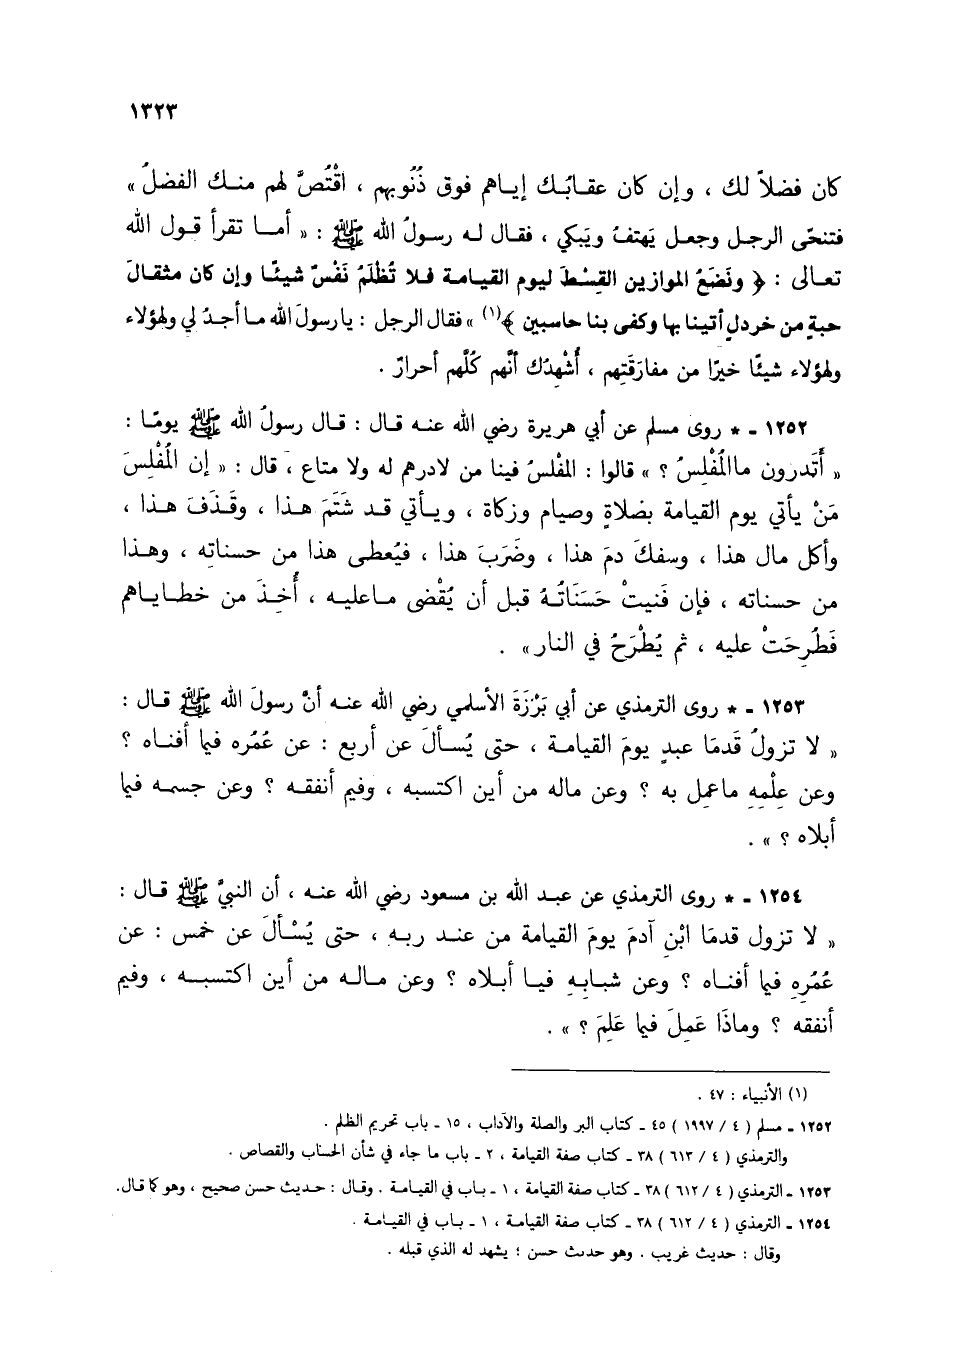 ١٣٢٣
كان فضلاً لك ، وإن كان عقابُك إياهم فوق ذُنُوبهم ، اقْتُصَّ لهم منك الفضلُ »
فتنحّى الرجل وجعل يَهتفُ ويَبكي ، فقال له رسولُ الله ﷺ : « أما تقرأ قول الله
تعالى : ﴿ ونَضَعُ الموازين القِسْطَ ليوم القيامة فلا تُظْلَمُ نَفْسٌ شيئًا وإن كان مثقالَ
حبةٍ من خردلٍ أتينا بها وكفى بنا حاسبين ﴾(١) » فقال الرجل : يا رسولَ الله ما أجدُ لي ولهؤلاء
ولهؤلاء شيئًا خيرًا من مفارَقَتِهم ، أُشْهِدُك أنَّهم كُلَّهم أحرارٌ .
١٢٥٢ - * روى مسلم عن أبي هريرة رضي الله عنه قال : قال رسولُ الله ﷺ يومًا :
« أَتَدرون ماالمُفْلِسُ ؟ » قالوا : المفْلسُ فينا من لادرهم له ولا متاع ، قال : « إن المُفْلِسَ
مَنْ يأتي يوم القيامة بصَلاةٍ وصيام وزكاة ، ويأتي قد شَتَمَ هذا ، وقَذَفَ هذا ،
وأكل مال هذا ، وسفكَ دمَ هذا ، وضَرَبَ هذا ، فيُعطى هذا من حسناتِه ، وهذا
من حسناته ، فإن فَنيتْ حَسَنَاتُهُ قبل أن يُقْضى ماعليه ، أُخِذَ من خطاياهم
فَطُرِحَتْ عليه ، ثم يُطْرَحُ في النار» .
١٢٥٣ - * روى الترمذي عن أبي بَرْزَةَ الأسلمي رضي الله عنه أنَّ رسولَ الله ﷺ قال :
« لا تزولُ قَدمَا عبدٍ يومَ القيامة ، حتى يُسألَ عن أربع : عن عُمُره فيما أفناه ؟
وعن عِلْمِهِ ماعمِل به ؟ وعن ماله من أين اكتسبه ، وفيم أنفقه ؟ وعن جسمه فيما
أبلاه ؟ » .
١٢٥٤ - * روى الترمذي عن عبد الله بن مسعود رضي الله عنه ، أن النبيَّ ﷺ قال :
« لا تزول قدمَا ابْنِ آدمَ يومَ القيامة من عند ربه ، حتى يُسْألَ عن خمس : عن
عُمُرِهِ فيما أفناه ؟ وعن شبابِهِ فيما أبلاه ؟ وعن ماله من أين اكتسبه ، وفيم
أنفقه ؟ وماذَا عَمِلَ فيما عَلِمَ ؟ » .
(١) الأنبياء : ٤٧ .
١٢٥٢ - مسلم ( ٤ / ١٩٩٧ ) ٤٥ - كتاب البر والصلة والآداب ، ١٥ - باب تحريم الظلم .
والترمذي ( ٤ / ٦١٣ ) ٣٨ - كتاب صفة القيامة ، ٢ - باب ما جاء في شأن الحساب والقصاص .
١٢٥٣ - الترمذي ( ٤ / ٦١٢ ) ٣٨ - كتاب صفة القيامة ، ١ - باب في القيامة . وقال : حديث حسن صحيح ، وهو كما قال.
١٢٥٤ - الترمذي ( ٤ / ٦١٢ ) ٣٨ - كتاب صفة القيامة ، ١ - باب في القيامة .
وقال : حديث غريب . وهو حديث حسن ؛ يشهد له الذي قبله .